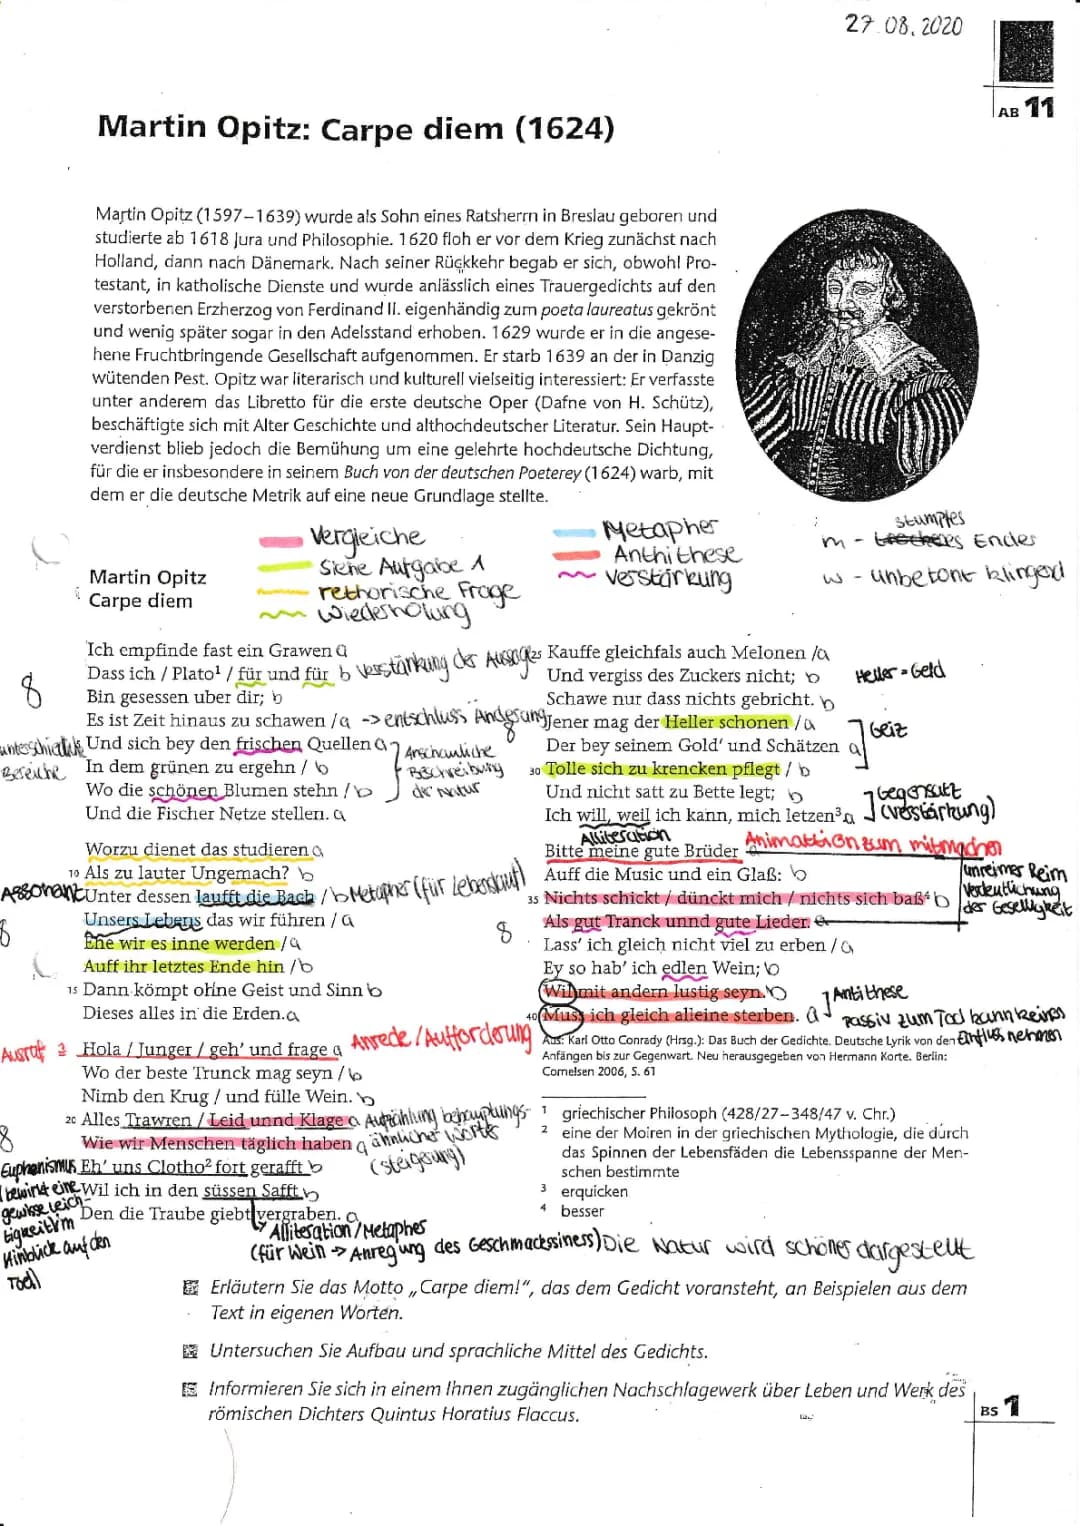 27.08.2020
AB 11
Martin Opitz: Carpe diem (1624)
Martin Opitz (1597–1639) wurde als Sohn eines Ratsherrn in Breslau geboren und
studierte ab 1618 Jura und Philosophie. 1620 floh er vor dem Krieg zunächst nach
Holland, dann nach Dänemark. Nach seiner Rückkehr begab er sich, obwohl Pro-
testant, in katholische Dienste und wurde anlässlich eines Trauergedichts auf den
verstorbenen Erzherzog von Ferdinand II. eigenhändig zum poeta laureatus gekrönt
und wenig später sogar in den Adelsstand erhoben. 1629 wurde er in die angese-
hene Fruchtbringende Gesellschaft aufgenommen. Er starb 1639 an der in Danzig
wütenden Pest. Opitz war literarisch und kulturell vielseitig interessiert: Er verfasste
unter anderem das Libretto für die erste deutsche Oper (Dafne von H. Schütz),
beschäftigte sich mit Alter Geschichte und althochdeutscher Literatur. Sein Haupt-
verdienst blieb jedoch die Bemühung um eine gelehrte hochdeutsche Dichtung,
für die er insbesondere in seinem Buch von der deutschen Poeterey (1624) warb, mit
dem er die deutsche Metrik auf eine neue Grundlage stellte.
Vergleiche
Siehe Aufgabe 1
rethorische Frage
Wiederholung
Metapher
Anthithese
Verstärkung
stumpfes
m - Endes
w - unbetont klingend
Martin Opitz
Carpe diem
Ich empfinde fast ein Grawen a
Dass ich / Plato¹ / für und für b Verstärkung der Aussage
8
Bin gesessen uber dir; b
Es ist Zeit hinaus zu schawen / a -> entschluss Änderung
unterschiedliche Bereiche
Und sich bey den frischen Quellen a
In dem grünen zu ergehn / b
Wo die schönen Blumen stehn / b
Und die Fischer Netze stellen. a
Anschauliche
Beschreibung
der Natur
Worzu dienet das studieren a
10 Als zu lauter Ungemach? b
Assonant
Unter dessen laufft die Bach / b Metapher (für Lebenslauf)
Unsers Lebens das wir führen / a
8
Ehe wir es inne werden / a
Auff ihr letztes Ende hin / b
15 Dann kömpt ohne Geist und Sinn b
Dieses alles in die Erden. a
Ausruf
Hola / Junger / geh' und frage a Anrede / Aufforderung
Wo der beste Trunck mag seyn / b
Nimb den Krug / und fülle Wein. b
20 Alles Trawren / Leid unnd Klage a Aufzählung
ähnlicher Worte
(steigerung)
8
Wie wir Menschen täglich haben a
Euphemismus
Eh' uns Clotho² fort gerafft b
Wil ich in den süssen Safft b
Den die Traube giebt vergraben. a
bewirkt eine
gewisse leich-
tigkeit im
Hinblick auf den
Tod
Alliteration / Metapher
(für Wein -> Anregung des Geschmackssiness)
Die Natur wird schöner dargestellt
25 Kauffe gleichfals auch Melonen / a
Und vergiss des Zuckers nicht; b
Heller = Geld
Schawe nur dass nichts gebricht. b
8
Jener mag der Heller schonen / a
Der bey seinem Gold' und Schätzen a
30 Tolle sich zu krencken pflegt / b
Geiz
Und nicht satt zu Bette legt; b
Ich will, weil ich kann, mich letzen³ a
Gegensatz
(Verstärkung)
Alliteration
Bitte meine gute Brüder a
Animattion zum mitmachen
Auff die Music und ein Glaß: b
35 Nichts schickt / dünckt mich / nichts sich baß⁴ b
Als gut Tranck unnd gute Lieder. a
unreiner Reim
Verdeutlichung
der Geselligkeit
8
Lass' ich gleich nicht viel zu erben / a
Ey so hab' ich edlen Wein; b
Wil mit andern lustig seyn. b
40 Muss ich gleich alleine sterben. a
Antithese
passiv zum Tod kann keinen
Einfluss nehmen
Aus: Karl Otto Conrady (Hrsg.): Das Buch der Gedichte. Deutsche Lyrik von den
Anfängen bis zur Gegenwart. Neu herausgegeben von Hermann Korte. Berlin:
Cornelsen 2006, S. 61
1 griechischer Philosoph (428/27–348/47 v. Chr.)
2 eine der Moiren in der griechischen Mythologie, die durch
das Spinnen der Lebensfäden die Lebensspanne der Men-
schen bestimmte
3 erquicken
4 besser
Erläutern Sie das Motto „Carpe diem!“, das dem Gedicht voransteht, an Beispielen aus dem
Text in eigenen Worten.
Untersuchen Sie Aufbau und sprachliche Mittel des Gedichts.
Informieren Sie sich in einem Ihnen zugänglichen Nachschlagewerk über Leben und Werk des
römischen Dichters Quintus Horatius Flaccus.
BS 1